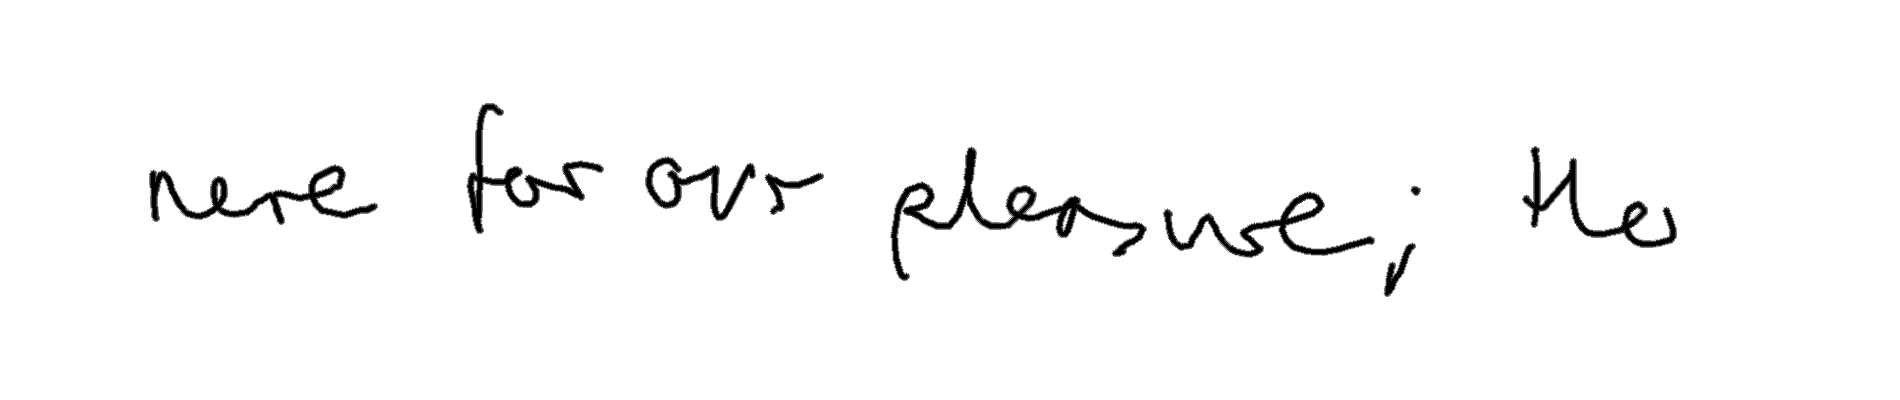 here for our pleasure; the